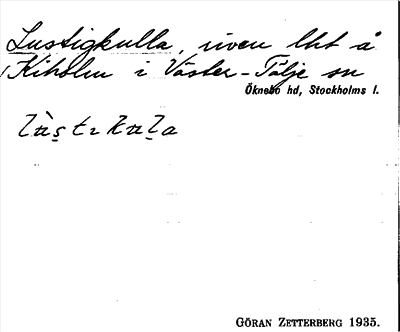 Lustigkulla, riven lht å
Kiholm i Väster-Tälje sn
Öknebo hd, Stockholms l.
GÖRAN ZETTERBERG 1935.